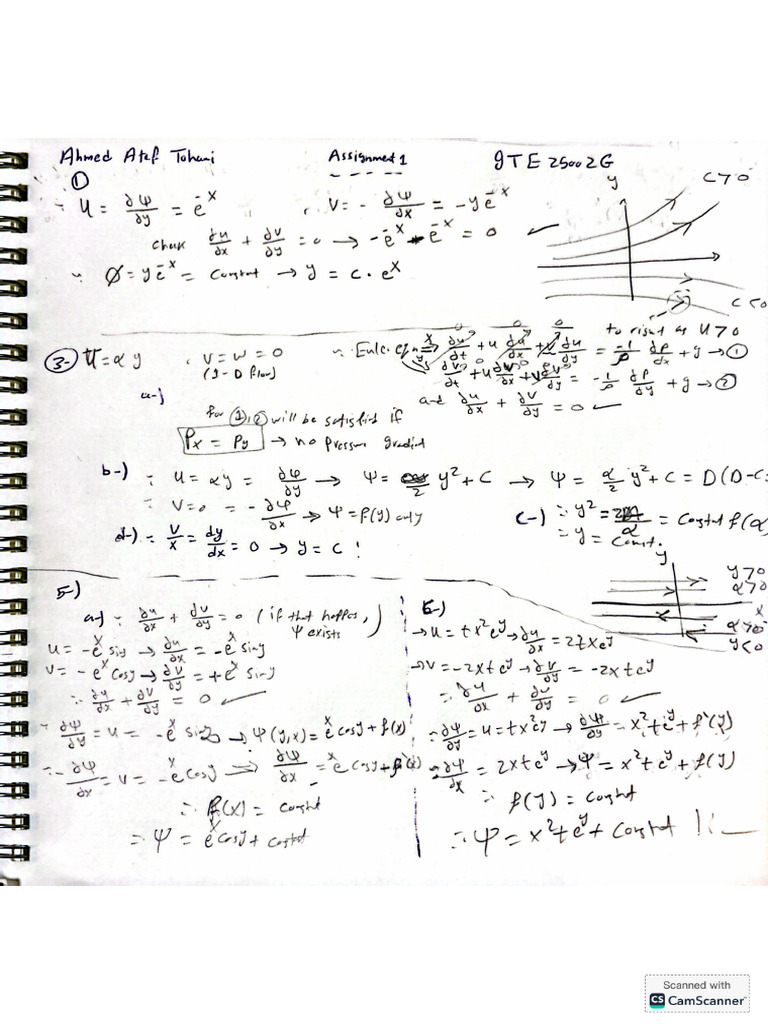 Ahmed Atef Tohami Assignment 1 GTE 25002G
①
∵ U = ∂Ψ/∂y = e^-x , V = - ∂Ψ/∂x = -y e^-x
∂u/∂x + ∂v/∂y = 0 → -e^-x - e^-x = 0 ✓
∵ Ø = y e^-x = constat → y = c · e^x
y
C > 0
C < 0
to right as U > 0
3- U = α y , V = W = 0
(1-D flow)
∵ Eule. eqn ⇒ x ∂u/∂t + u ∂u/∂x + v ∂u/∂y = -1/ρ ∂p/∂x + g → ①
y ∂v/∂t + u ∂v/∂x + v ∂v/∂y = -1/ρ ∂p/∂y + g → ②
and ∂u/∂x + ∂v/∂y = 0 ✓
a-)
for ①, ② will be satisfied if
Px = Py → no pressure gradient
b-) ∵ U = αy = ∂Ψ/∂y → Ψ = /2 y² + C → Ψ = α/2 y² + C = D (D-C=
∵ V = 0 = -∂Ψ/∂x → Ψ = f(y) only
c-) ∵ y² = = Constat f(α
∴ y = const.
d-) ∵ V/x = dy/dx = 0 → y = C !
y
y > 0
α > 0
x
α > 0
y < 0
5-)
a-) ∵ ∂u/∂x + ∂v/∂y = 0 (if that happes, Ψ exists)
U = -e^x sin y → ∂u/∂x = -e^x sin y
V = -e^x cos y → ∂v/∂y = +e^x sin y
∴ ∂u/∂x + ∂v/∂y = 0 ✓
∵ ∂Ψ/∂y = U = -e^x sin → Ψ(y,x) = e^x cos y + f(x)
∵ -∂Ψ/∂x = V = -e^x cos y ⇒ ∂Ψ/∂x = e^x cos y + f`(x)
∴ f(x) = constat
∴ Ψ = e^x cos y + costat
6-)
→ U = t x² e^y → ∂u/∂x = 2t x e^y
→ V = -2xt e^y → ∂v/∂y = -2xt e^y
∴ ∂u/∂x + ∂v/∂y = 0 ✓
∴ ∂Ψ/∂y = U = t x² e^y → ∂Ψ/∂y = x² t e^y + f`(y)
∵ ∂Ψ/∂x = 2x t e^y → Ψ = x² t e^y + f(y)
∴ f(y) = constat
∴ Ψ = x² t e^y + constat !!
Scanned with
CS CamScanner